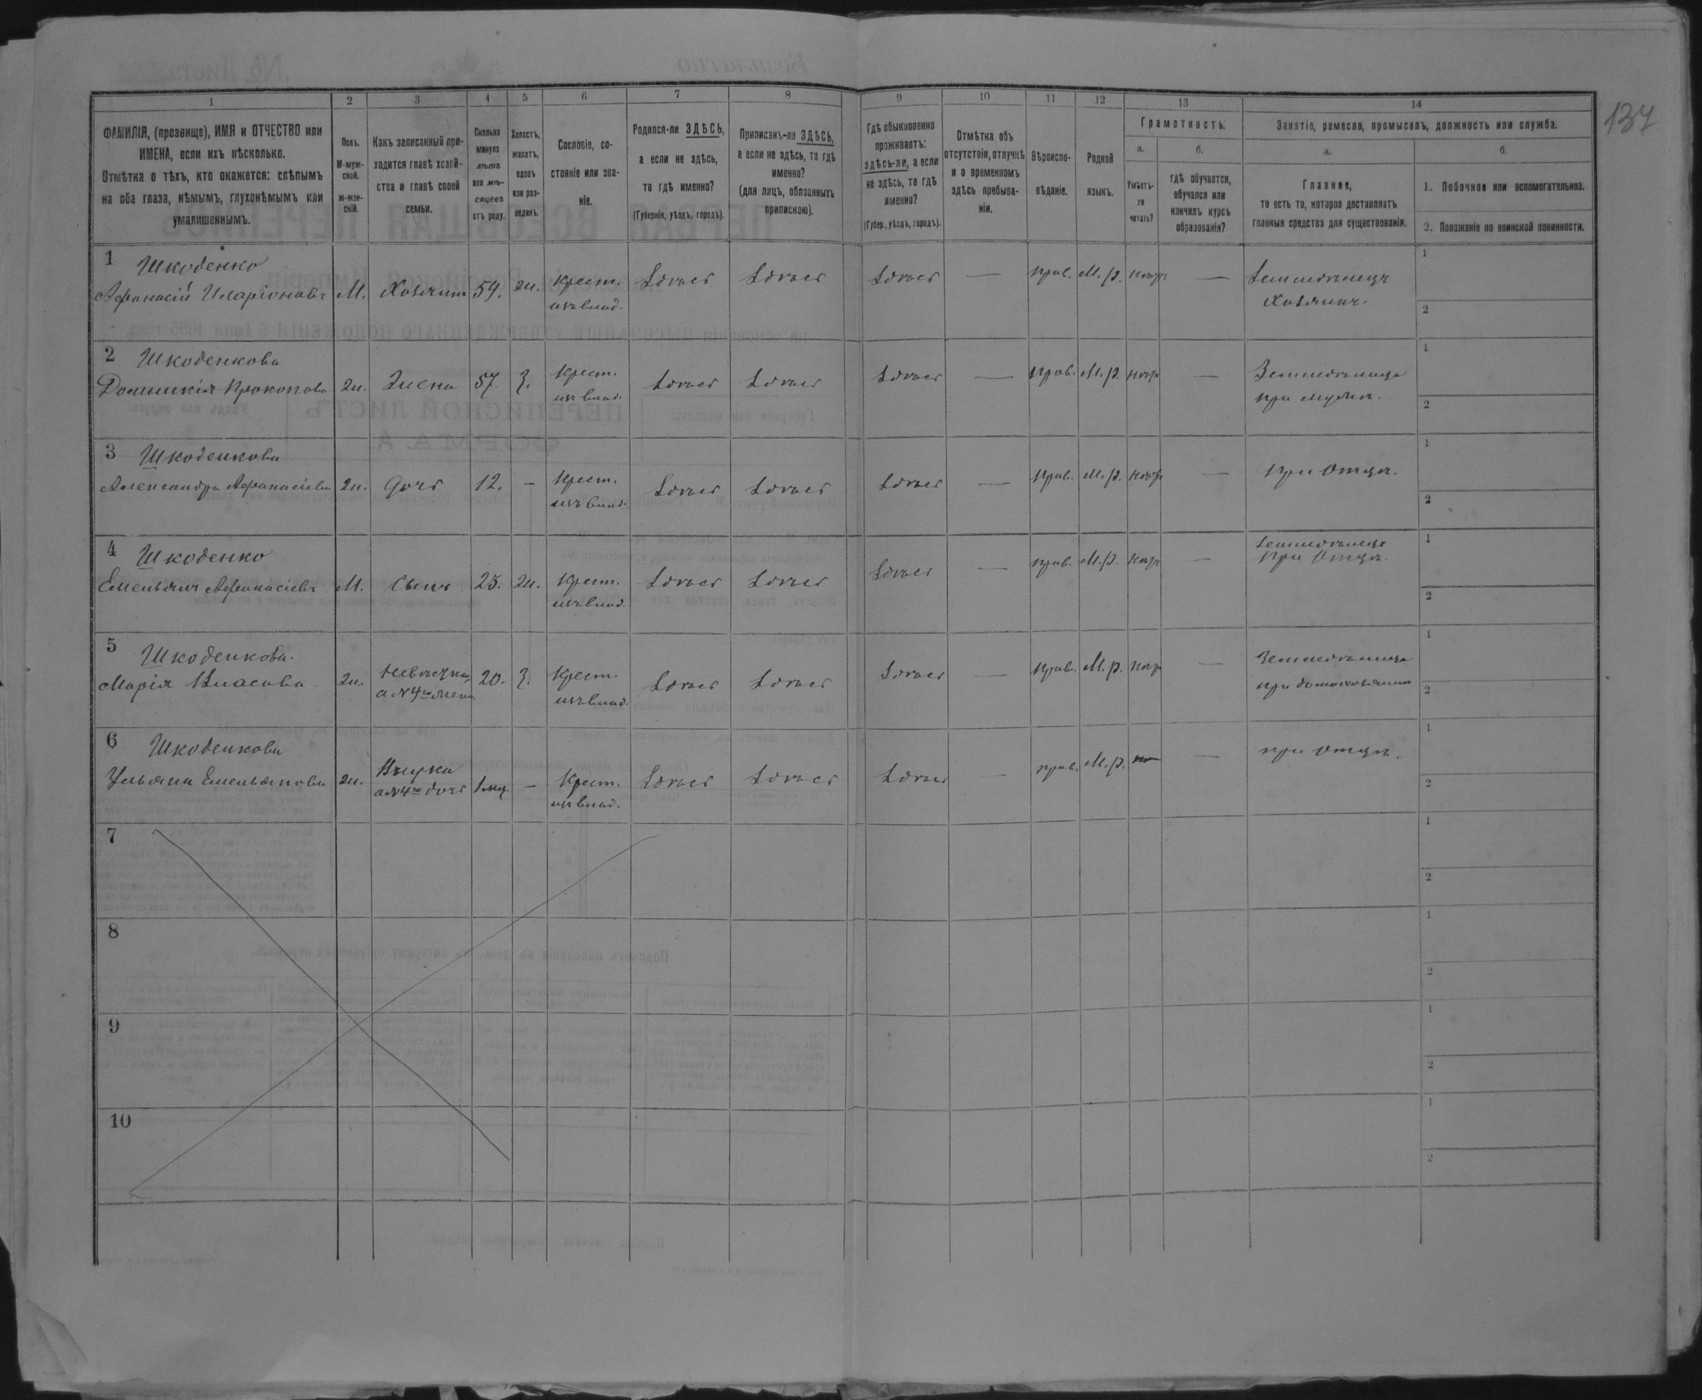 137
1 2 3 4 5 6 7 8 9 10 11 12 13 14
ФАМИЛІЯ, (прозвище), ИМЯ и ОТЧЕСТВО или
ИМЕНА, если ихъ нѣсколько.
Отмѣтка о тѣхъ, кто окажется: слѣпымъ
на оба глаза, нѣмымъ, глухонѣмымъ или
умалишеннымъ.
Полъ.
М-муж-
ской.
ж-жен-
скій.
Какъ записанный при-
ходится главѣ хозяй-
ства и главѣ своей
семьи.
Сколько
минуло
лѣтъ
или мѣ-
сяцевъ
отъ роду.
Холостъ,
женатъ,
вдовъ
или раз-
веденъ.
Сословіе, со-
стояніе или зва-
ніе.
Родился-ли ЗДѢСЬ,
а если не здѣсь,
то гдѣ именно?
(Губернія, уѣздъ, городъ).
Приписанъ-ли ЗДѢСЬ,
а если не здѣсь, то гдѣ
именно?
(для лицъ, обязанныхъ
припискою).
Гдѣ обыкновенно
проживаетъ:
здѣсь-ли, а если
не здѣсь, то гдѣ
именно?
(Губер., уѣздъ, городъ).
Отмѣтка объ
отсутствіи, отлучкѣ
и о временномъ
здѣсь пребыва-
ніи.
Вѣроиспо-
вѣданіе.
Родной
языкъ.
Грамотность.
а.
Умѣетъ-
ли
читать?
б.
гдѣ обучается,
обучался или
кончилъ курсъ
образованія?
Занятіе, ремесло, промыселъ, должность или служба.
а.
Главное,
то есть то, которое доставляетъ
главныя средства для существованія.
б.
1. Побочное или вспомогательное.
2. Положеніе по воинской повинности.
1 Шкоденко
Афанасій Иларіоновъ М. Хозяинъ 59. ж. крест. Здѣсь Здѣсь Здѣсь — прав. М.р. —
изъ влад.
Земледѣлецъ
Хозяинъ.
1
2
2 Шкоденкова
Домникія Прокопова ж. Жена 57. З. крест. Здѣсь Здѣсь Здѣсь — прав. М.р. —
изъ влад.
при мужѣ.
1
2
3 Шкоденкова
Александра Афанасіева ж. дочь 12. — крест. Здѣсь Здѣсь Здѣсь — прав. М.р. — при отцѣ.
изъ влад.
1
2
4 Шкоденко
Емельянъ Афанасіевъ М. сынъ 25. ж. крест. Здѣсь Здѣсь Здѣсь — прав. М.р. —
изъ влад.
Земледѣлецъ
при отцѣ.
1
2
5 Шкоденкова.
Марія Власова ж. невѣстка 20. З. крест. Здѣсь Здѣсь Здѣсь — прав. М.р. —
а №4го жена изъ влад.
1
2
6 Шкоденкова
Ульяна Емельянова ж. Внучка 1 мѣц — крест. Здѣсь Здѣсь Здѣсь — прав. М.р. — — при отцѣ.
а №4го дочь изъ влад.
1
2
7
1
2
8
1
2
9
1
2
10
1
2